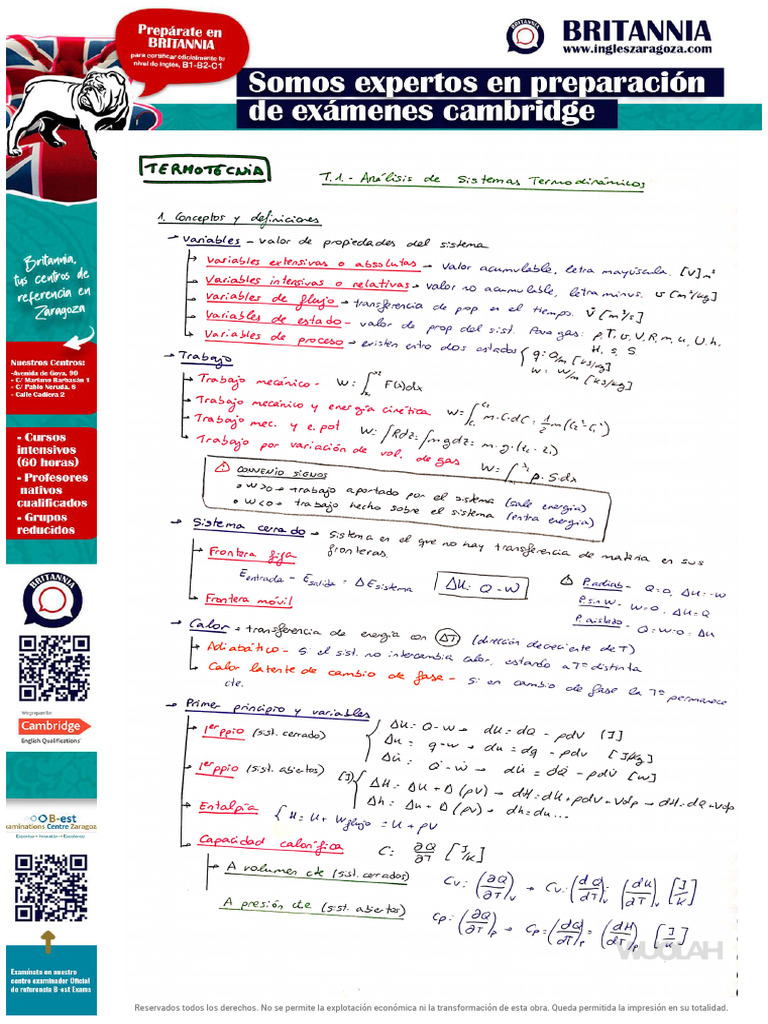 Prepárate en
BRITANNIA
para certificar oficialmente tu
nivel de inglés, B1-B2-C1
BRITANNIA
www.ingleszaragoza.com
Somos expertos en preparación
de exámenes cambridge
Britannia,
tus centros de
referencia en
Zaragoza
Nuestros Centros:
-Avenida de Goya, 90
- C/ Mariano Barbasán 1
- C/ Pablo Neruda, 6
- Calle Cadiera 2
- Cursos
intensivos
(60 horas)
- Profesores
nativos
cualificados
- Grupos
reducidos
BRITANNIA
We prepare for
Cambridge
English Qualifications
B-est
aminations Centre Zaragoza
Examínate en nuestro
centro examinador Oficial
de referencia B-est Exams
TERMOTECNIA
T.1.- Análisis de Sistemas Termodinámicos
1. Conceptos y definiciones
→ Variables - valor de propiedades del sistema
→ Variables extensivas o absolutas → valor acumulable, letra mayúscula. [V] m³
→ Variables intensivas o relativas → valor no acumulable, letra minus. v [m³/kg]
→ Variables de flujo → transferencia de prop. en el tiempo. V̇ [m³/s]
→ Variables de estado - valor de prop del sist. Para gas: p, T, v, V, R, m, u, U, h,
H, s, S
→ Variables de proceso → existen entre dos estados { q: Q/m [kJ/kg]
w: W/m [kJ/kg]
→ Trabajo
→ Trabajo mecánico - W = ∫ F(x)dx
→ Trabajo mecánico y energía cinética W = ∫ m·C·dC = 1/2 m(C₂² - C₁²)
→ Trabajo mec. y e. pot W = ∫Rdz = ∫mgdz = m·g·(z₂ - z₁)
→ Trabajo por variación de vol. de gas W = ∫ p·S·dx
⚠ CONVENIO SIGNOS
• W>0 → trabajo aportado por el sistema (sale energía)
• W<0 → trabajo hecho sobre el sistema (entra energía)
→ Sistema cerrado → sistema en el que no hay transferencia de materia en sus
fronteras.
→ Frontera fija
E entrada - E salida = ΔE sistema
ΔU = Q - W
⚠ P. adiab - Q=0, ΔU=-W
P. sin W - W=0, ΔU=Q
P. aislado - Q=W=0=ΔU
→ Frontera móvil
→ Calor → transferencia de energía con ΔT (dirección decreciente de T)
→ Adiabático - Si el sist. no intercambia calor, estando a Tª distinta
→ Calor latente de cambio de fase - si en cambio de fase la Tª permanece
cte.
→ Primer principio y variables
→ 1er ppio (sist. cerrado) { ΔU = Q - W → dU = dQ - pdV [J]
Δu = q - w → du = dq - pdv [J/kg]
ΔU̇ = Q̇ - Ẇ → dU̇ = dQ̇ - pdV̇ [W]
→ 1er ppio (sist. abiertos) [J] { ΔH = ΔU + Δ(pV) → dH = dU + pdV + Vdp → dH = dQ + Vdp
Δh = Δu + Δ(pv) → dh = du...
→ Entalpía { H = U + W flujo = U + pV
→ Capacidad calorífica C = ∂Q/∂T [J/K]
→ A volumen cte (sist. cerrados) Cv = (∂Q/∂T)v → Cv = (dQ/dT)v = (dU/dT)v [J/K]
A presión cte (sist. abiertos) Cp = (∂Q/∂T)p → Cp = (dQ/dT)p = (dH/dT)p [J/K]
WUOLAH
Reservados todos los derechos. No se permite la explotación económica ni la transformación de esta obra. Queda permitida la impresión en su totalidad.